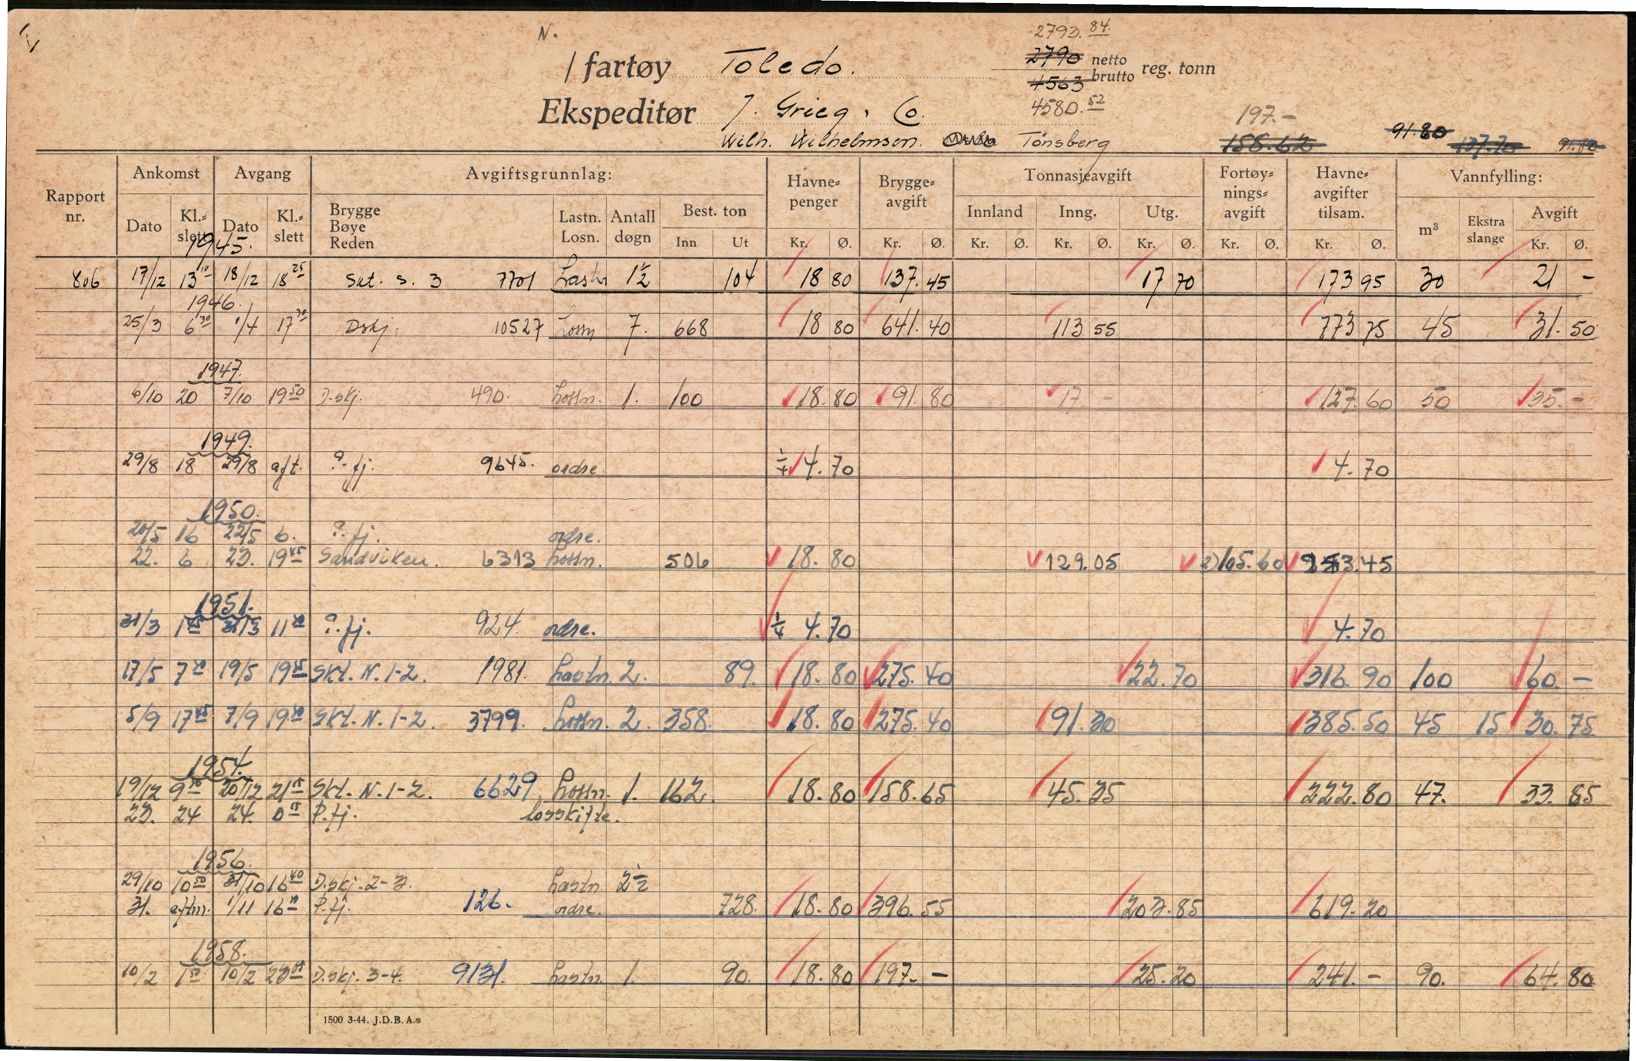 N.
2793.84
/ fartøy Toledo. 2790 netto
4563 brutto reg. tonn
Ekspeditør J. Grieg & Co. 4580.52
197.-
Wilh. Wilhelmsen. Tønsberg 158.62 91.80 137.70 91.80
Rapport nr. Ankomst Avgang Avgiftsgrunnlag: Havne-penger Brygge-avgift Tonnasjeavgift Fortøy-nings-avgift Havne-avgifter tilsam. Vannfylling:
Dato Kl.-slett Dato Kl.-slett Brygge Bøye Reden Lastn. Losn. Antall døgn Best. ton Innland Inng. Utg. m³ Ekstra slange Avgift
Inn Ut Kr. Ø. Kr. Ø. Kr. Ø. Kr. Ø. Kr. Ø. Kr. Ø. Kr. Ø. Kr. Ø.
1945.
806 17/12 13 10 18/12 18 25 Skt. S. 3 7701 Lastn 1½ 104 18 80 137.45 17 70 173 95 30 21 -
1946.
25/3 6 30 1/4 17 30 Dskj. 10527 Lossn 7. 668 18 80 641.40 113 55 773 75 45 31.50
1947.
6/10 20 7/10 19 50 D.skj. 490. Lossn. 1. 100 18.80 91.80 17 - 127.60 50 35.-
1949.
29/8 18 29/8 aft. P.fj. 9645. ordre. ¼ 4.70 4.70
1950.
20/5 16 22/5 6. P.fj. ordre.
22. 6 23. 19 45 Sandviken. 6313 Lossn. 506 18.80 129.05 165.60 3.45
1951.
31/3 1 31/3 11 P.fj. 924. ordre. ¼ 4.70 4.70
17/5 7 19/5 19 Skt. N. 1-2. 1981. Lastn. 2. 89. 18.80 275.40 22.70 316.90 100 60.-
5/9 17 45 7/9 19 Skt. N. 1-2 3799. Lossn. 2 358. 18.80 275.40 91.30 385.50 45 15 30.75
1954.
19/12 9 20/12 21 Skt. N. 1-2. 6629. Lossn. 1. 162. 18.80 158.65 45.35 222.80 47. 33.85
23. 24 24. 0 P.fj. losskifte.
1956.
29/10 10 50 31/10 16 40 D.skj. 2-3. Lastn. 2½
31. eftm. 1/11 16 P.fj. 126. ordre. 728. 18.80 396.55 203.85 619.20
1958.
10/2 1 10/2 23 D.skj. 3-4. 9131. Lastn. 1. 90. 18.80 197.- 25.20 241.- 90. 64.80
1500 3-44. J.D.B. A.s